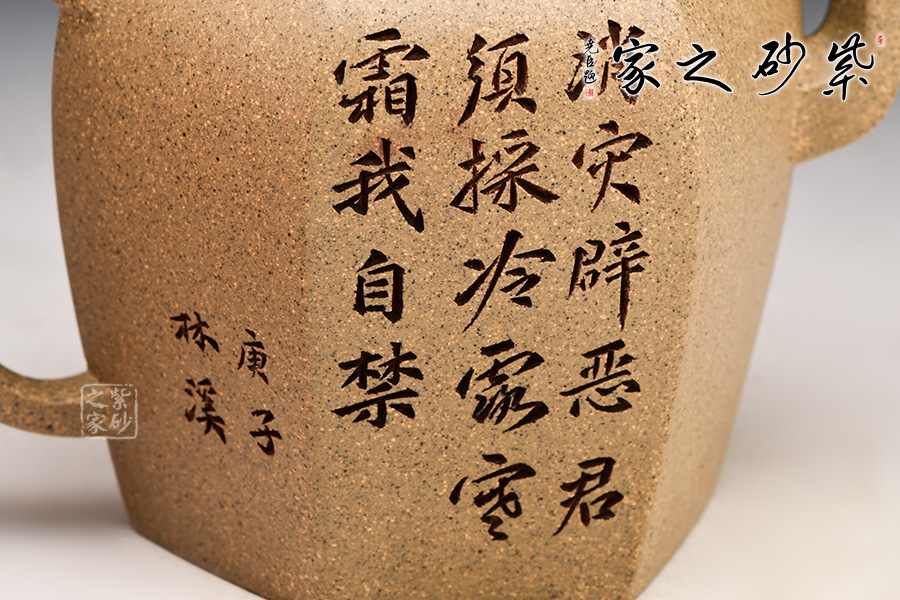 消灾辟恶君
须採冷露寒
霜我自禁
庚子
林溪
紫砂之家
紫砂之家